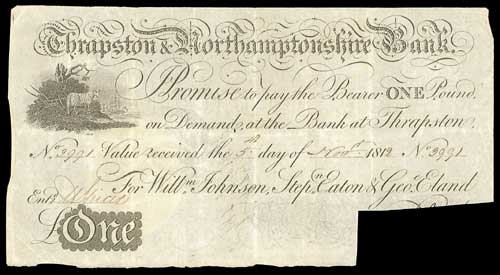 Thrapston & Northamptonshire Bank.
I Promise to pay the Bearer ONE Pound
on Demand, at the Bank at Thrapston,
No. 3991 Value received the 5th day of Novr. 1812 No. 3991
For Willm. Johnson, Stepn. Eaton & Geo. Eland
Entd.
£One